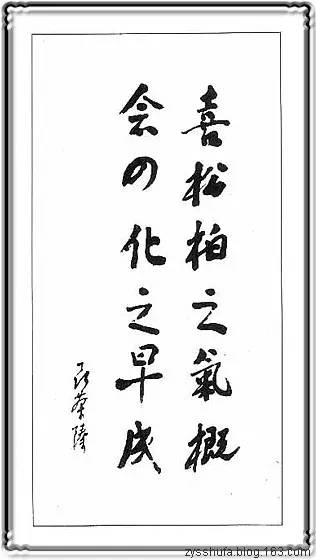 喜松柏之氣概
会四化之早成
zysshufa.blog.163.com